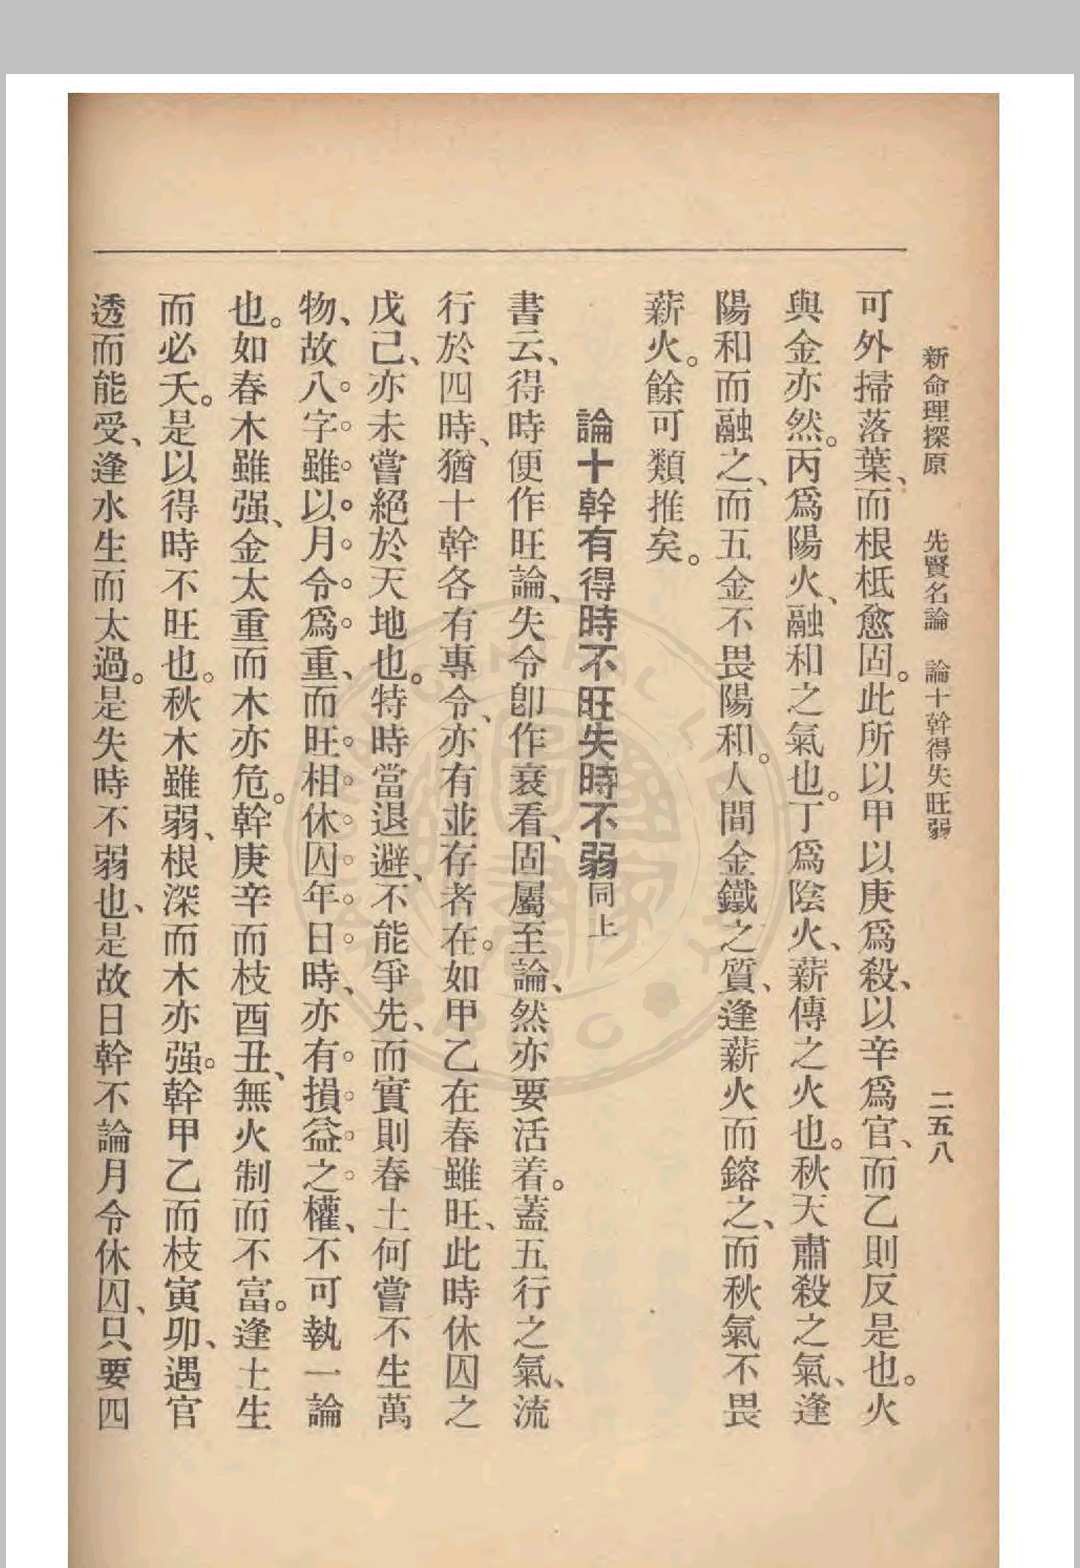 新命理探原　先賢名論　論十幹得失旺弱　二五八
可外掃落葉、而根柢愈固。此所以甲以庚爲殺、以辛爲官、而乙則反是也。火
與金亦然。丙爲陽火、融和之氣也。丁爲陰火、薪傳之火也。秋天肅殺之氣、逢
陽和而融之、而五金不畏陽和。人間金鐵之質、逢薪火而鎔之、而秋氣不畏
薪火。餘可類推矣。
論十幹有得時不旺失時不弱同上
書云、得時便作旺論、失令卽作衰看、固屬至論、然亦要活着。蓋五行之氣、流
行於四時、猶十幹各有專令、亦有並存者在。如甲乙在春雖旺、此時休囚之
戊己、亦未嘗絕於天地也。特時當退避、不能爭先、而實則春土何嘗不生萬
物、故八字雖以月令爲重、而旺相休囚年日時、亦有損益之權、不可執一論
也。如春木雖强、金太重而木亦危。幹庚辛而枝酉丑、無火制而不富。逢土生
而必夭。是以得時不旺也。秋木雖弱、根深而木亦强。幹甲乙而枝寅卯、遇官
透而能受、逢水生而太過。是失時不弱也、是故日幹不論月令休囚、只要四